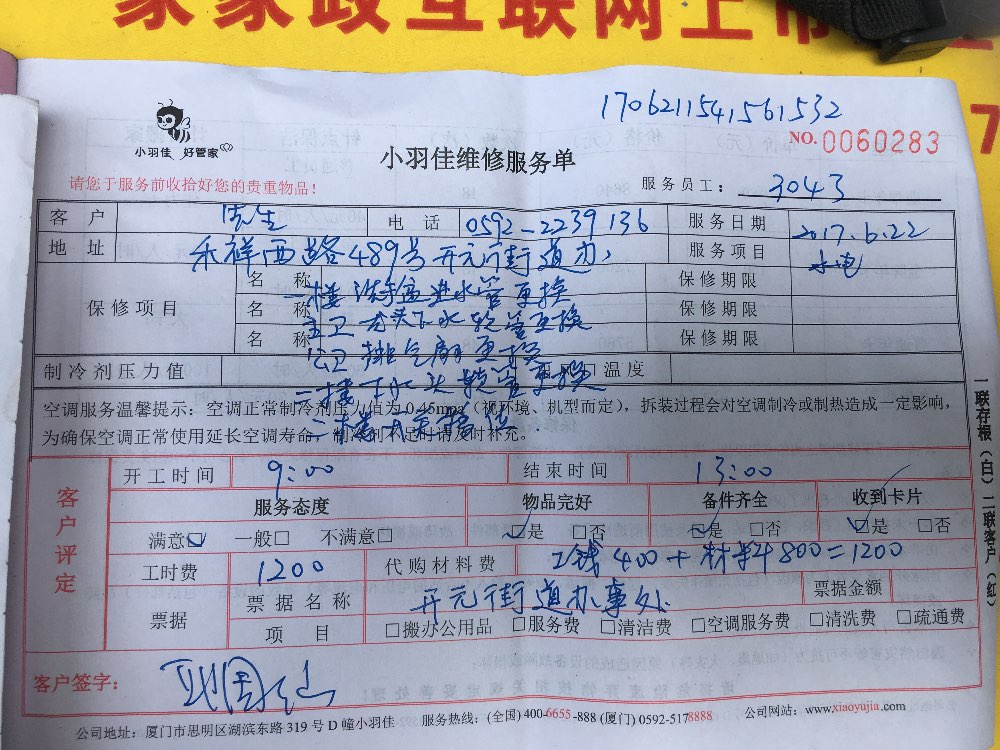 家家政互联网上市
1706211541561532
NO. 0060283
小羽佳 好管家
小羽佳维修服务单
请您于服务前收拾好您的贵重物品！
服务员工： 3043
客 户 电 话 0592-2239136 服务日期 2017.6.22
地 址 禾祥西路489号开元街道办 服务项目 水电
保修项目
名 称 一楼洗手盆进水管更换 保修期限
名 称 龙头下水软管更换 保修期限
名 称 公卫排气扇更换 保修期限
制冷剂压力值 温度
二楼 软管更换
空调服务温馨提示：空调正常制冷剂压力值为0.45mpa（视环境、机型而定），拆装过程会对空调制冷或制热造成一定影响，
为确保空调正常使用延长空调寿命，制冷剂不足时请及时补充。
客户评定
开工时间 9:00 结束时间 13:00
服务态度 物品完好 备件齐全 收到卡片
满意☑ 一般□ 不满意□ ☑是 □否 ☑是 □否 ☑是 □否
工时费 1200 代购材料费 工钱400+材料800=1200
票据 票据名称 开元街道办事处 票据金额
项 目 □搬办公用品 □服务费 □清洁费 □空调服务费 □清洗费 □疏通费
客户签字：
公司地址：厦门市思明区湖滨东路319号D幢小羽佳 服务热线：(全国) 400-6655-888 (厦门) 0592-5178888 公司网站：www.xiaoyujia.com
一联存根（白）二联客户（红）